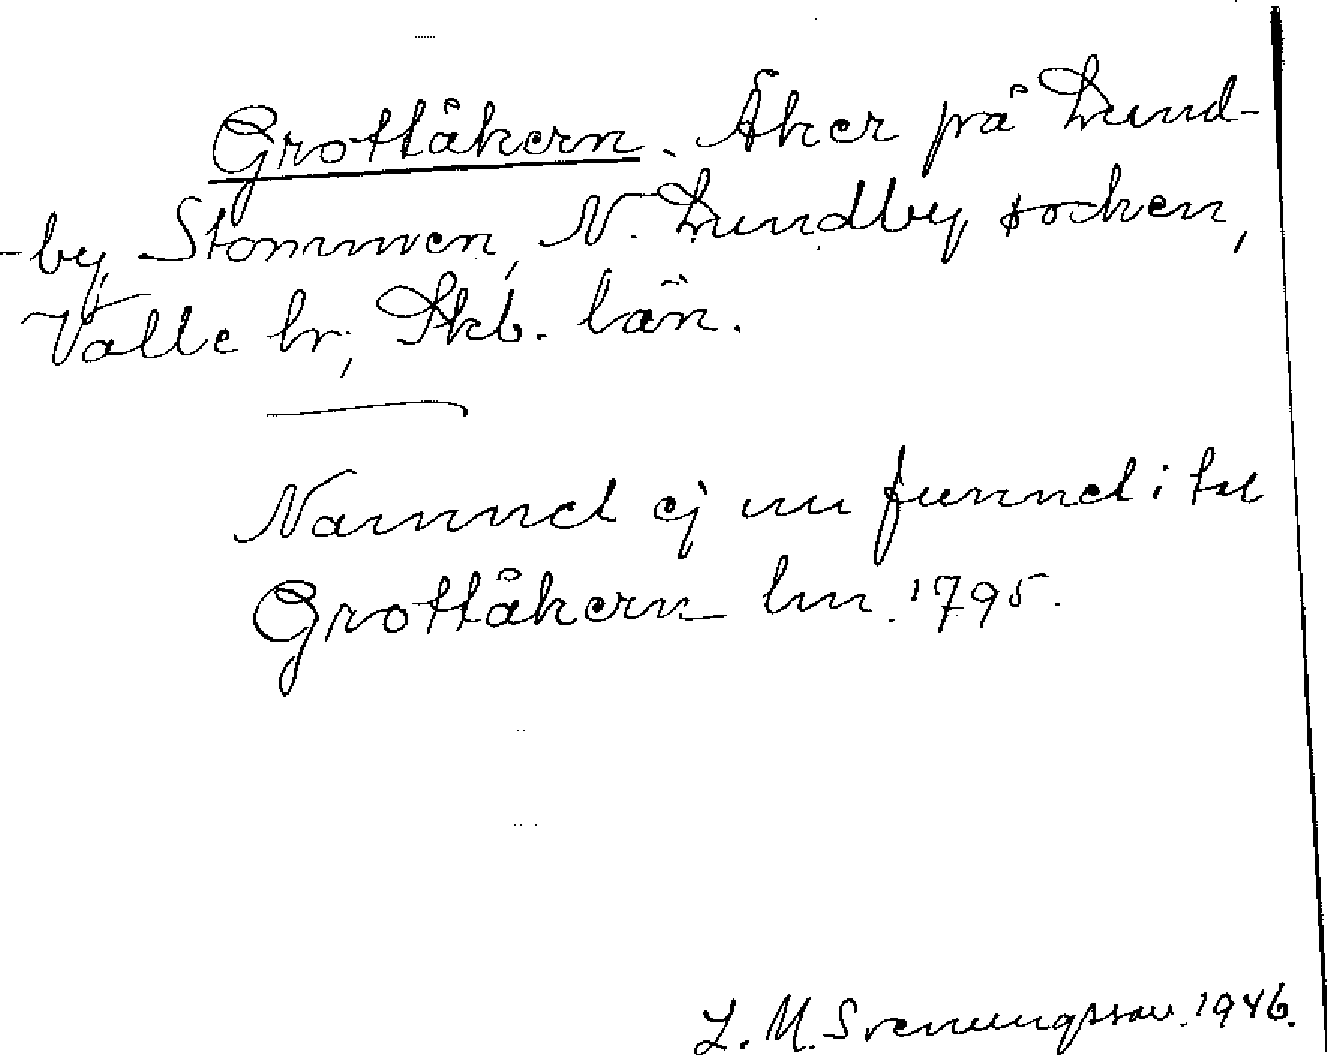 Grottåkern. Åker på Lund-
-by, Stommen, N. Lundby socken,
Valle hr, Skb. län.
Namnet ej nu funnet i tal
Grottåkern lm. 1795.
L. M. Svenungsson. 1946.